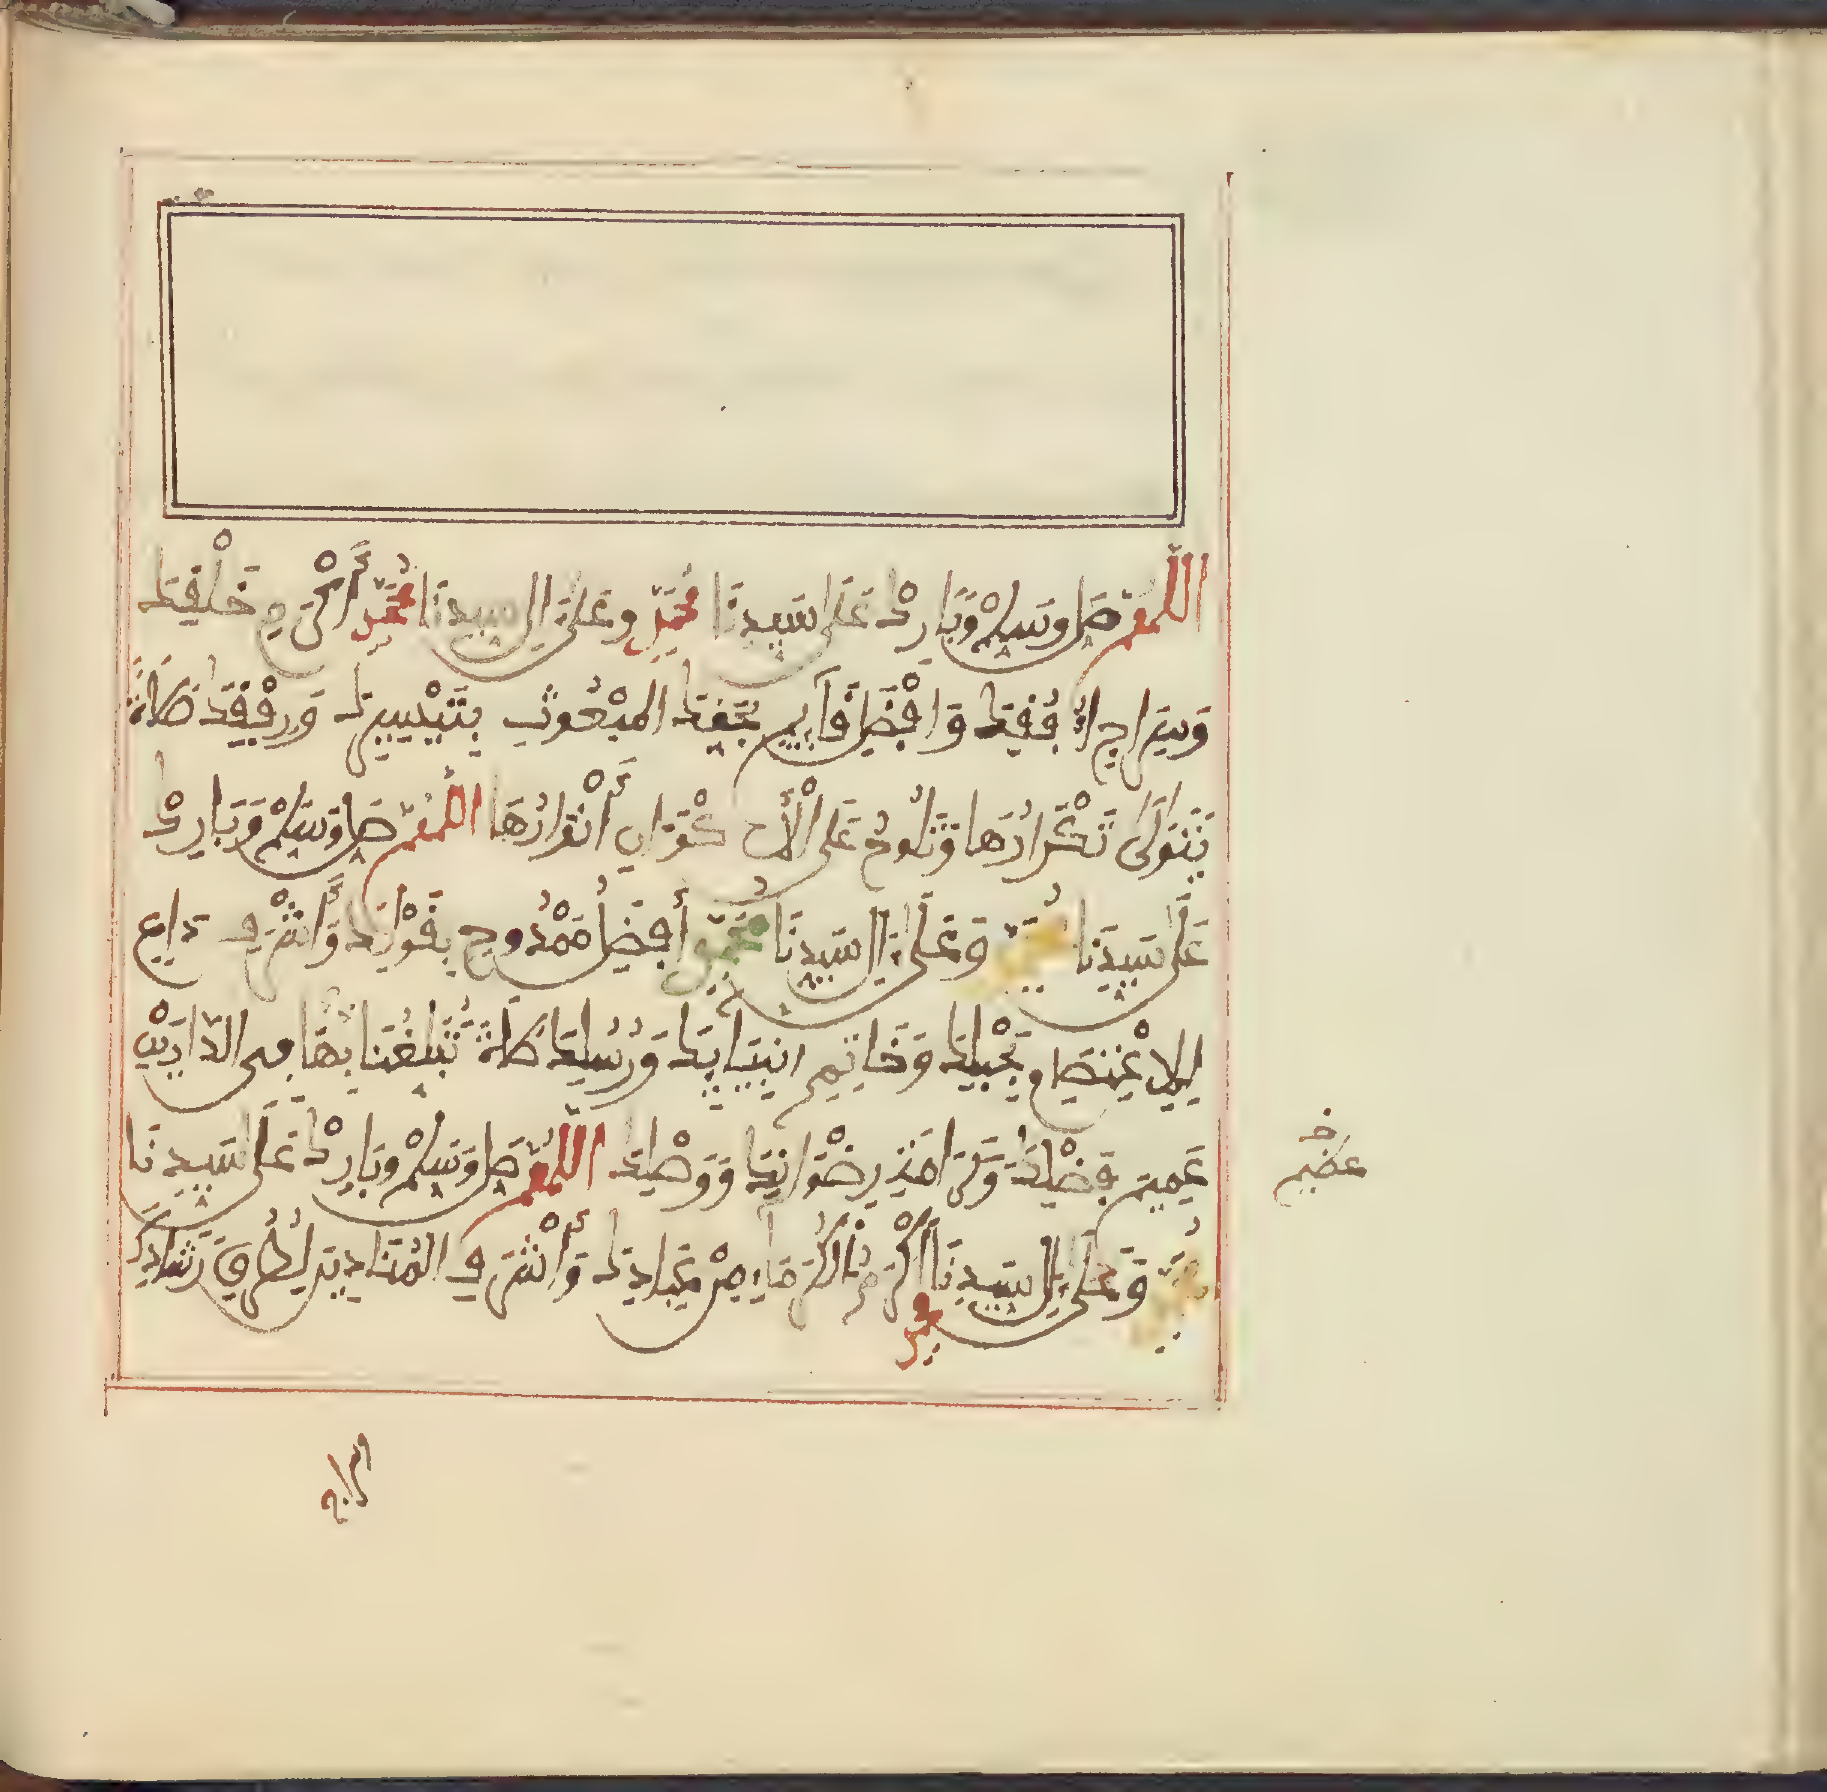 اللَّهُمَّ صَلِّ وَسَلِّمْ وَبَارِكْ عَلَى سَيِّدِنَا مُحَمَّدٍ وَعَلَى آلِ سَيِّدِنَا مُحَمَّدٍ أَكْرَمِ خَلْقِكَ
وَسِرَاجِ أُفُقِكَ وَأَفْضَلِ قَائِمٍ بِحَقِّكَ الْمَبْعُوثِ بِتَيْسِيرِكَ وَرِفْقِكَ صَلَاةً
يَتَوَالَى تَكْرَارُهَا وَتَلُوحُ عَلَى الْأَكْوَانِ أَنْوَارُهَا اللَّهُمَّ صَلِّ وَسَلِّمْ وَبَارِكْ
عَلَى سَيِّدِنَا مُحَمَّدٍ وَعَلَى آلِ سَيِّدِنَا مُحَمَّدٍ أَفْضَلِ مَمْدُوحٍ بِقَوْلِكَ وَأَشْرَفِ دَاعٍ
لِلِاعْتِصَامِ بِحَبْلِكَ وَخَاتِمِ أَنْبِيَائِكَ وَرُسُلِكَ صَلَاةً تُبَلِّغُنَا بِهَا فِي الدَّارَيْنِ
عَمِيمَ فَضْلِكَ وَكَرَامَةَ رِضْوَانِكَ وَوَصْلِكَ اللَّهُمَّ صَلِّ وَسَلِّمْ وَبَارِكْ عَلَى سَيِّدِنَا
مُحَمَّدٍ وَعَلَى آلِ سَيِّدِنَا مُحَمَّدٍ أَكْرَمِ الْكُرَمَاءِ مِنْ عِبَادِكَ وَأَشْرَفِ الْمُنَادِينَ لِطُرُقِ رَشَادِكَ